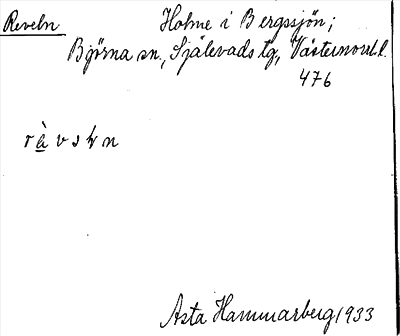 Reveln
Holme i Bergssjön;
Björna sn., Själevads tg., Västernorrl. l.
476
Asta Hammarberg 1933